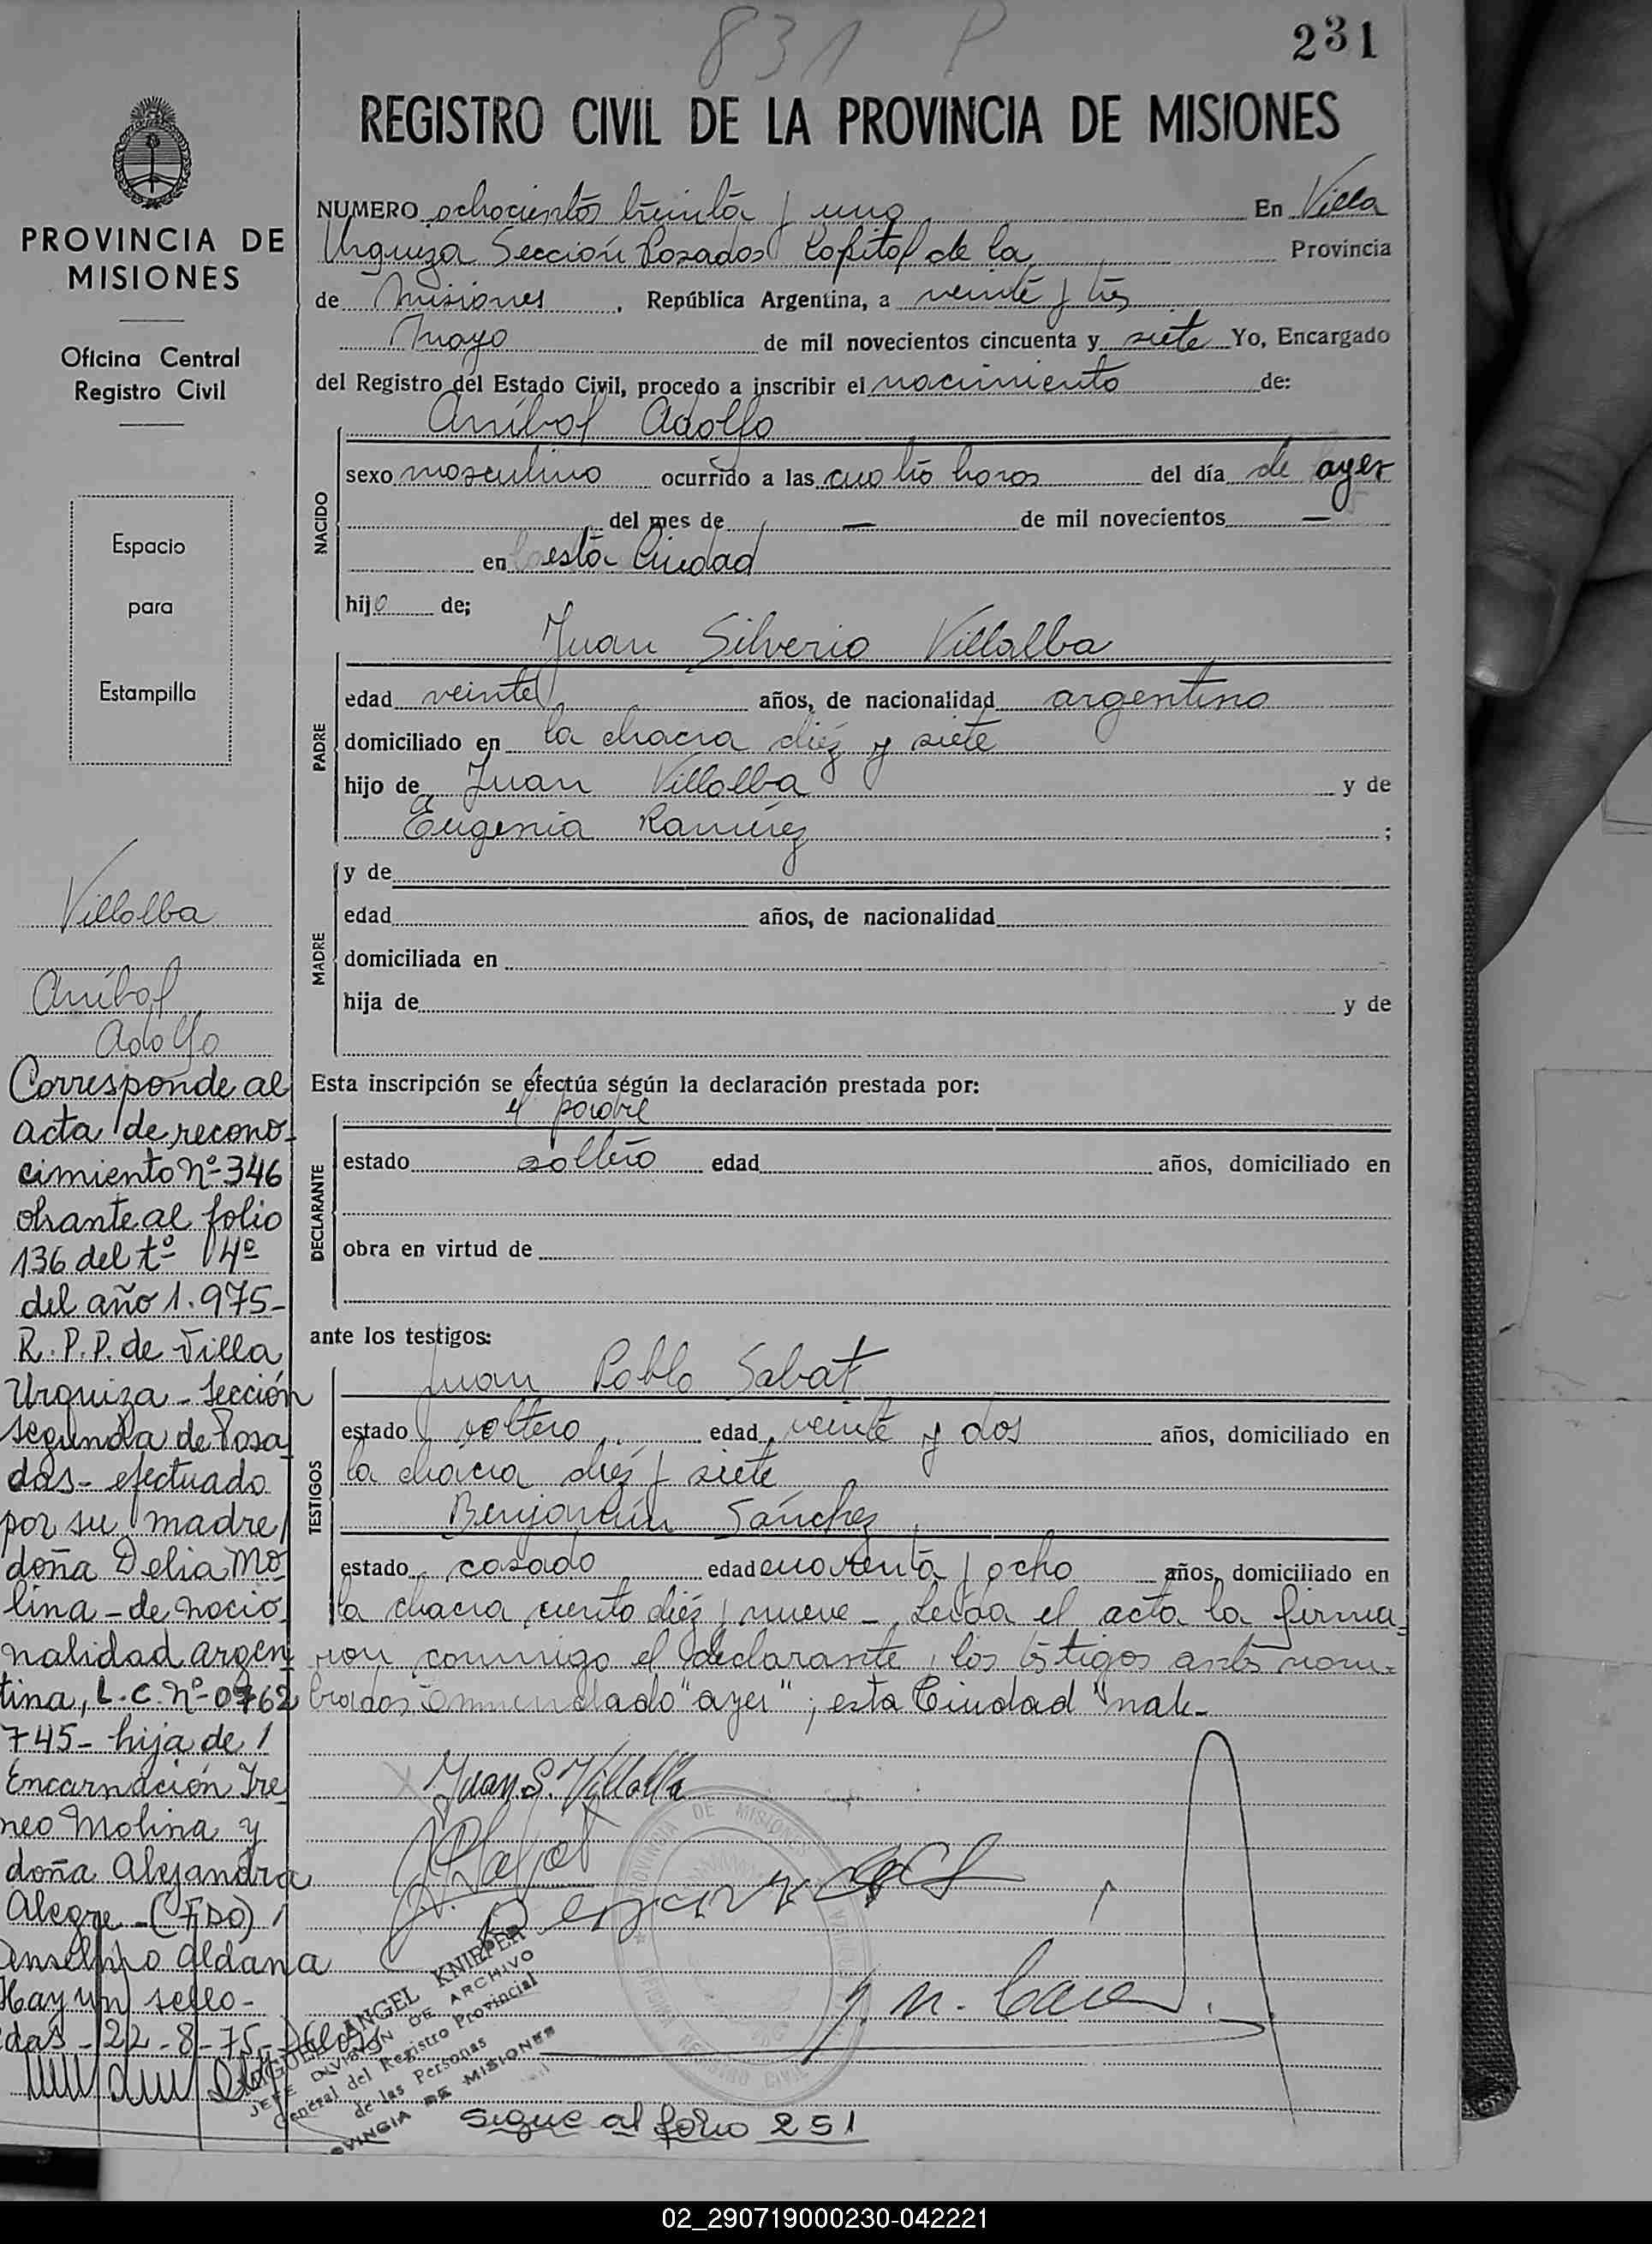 831 P
231
REGISTRO CIVIL DE LA PROVINCIA DE MISIONES
PROVINCIA DE
MISIONES
Oficina Central
Registro Civil
Espacio
para
Estampilla
NUMERO ochocientos treinta y uno En Villa
Urquiza Sección Posadas Capital de la Provincia
de Misiones, República Argentina, a veinte y tres
Mayo de mil novecientos cincuenta y siete Yo, Encargado
del Registro del Estado Civil, procedo a inscribir el nacimiento de:
Aníbal Adolfo
NACIDO
sexo masculino ocurrido a las cuatro horas del día de ayer
del mes de — de mil novecientos —
en esta Ciudad
hijo de;
Juan Silverio Villalba
PADRE
edad veinte años, de nacionalidad argentino
domiciliado en la chacra diez y siete
hijo de Juan Villalba y de
Eugenia Ramírez ;
MADRE
y de
edad años, de nacionalidad
domiciliada en
hija de y de
Esta inscripción se efectúa ségún la declaración prestada por:
el padre
DECLARANTE
estado soltero edad años, domiciliado en
obra en virtud de
ante los testigos:
Juan Pablo Sabat
TESTIGOS
estado soltero edad veinte y dos años, domiciliado en
la chacra diez y siete
Benjamín Sánchez
estado casado edad cuarenta y ocho años, domiciliado en
la chacra ciento diez y nueve - Leída el acta la firma-
ron conmigo el declarante y los testigos antes nom-
brados - Enmendado "ayer"; esta Ciudad "vale-
Juan S. Villalba
Villalba
Aníbal
Adolfo
Corresponde al
acta de recono-
cimiento Nº 346
obrante al folio
136 del tº 4º
del año 1.975-
R.P.P. de Villa
Urquiza - Sección
segunda de Posa
das - efectuado
por su madre
doña Delia Mo
lina - de nacio-
nalidad argen
tina, L.C. Nº 0762
745 - hija de
Encarnación Ire
neo Molina y
doña Alejandra
Alegre - (FDO)
Anselmo Aldana
Hay un sello -
das - 22-8-75-
PROVINCIA DE MISIONES
REGISTRO CIVIL
ANGEL KNIEPER
JEFE DIVISION DE ARCHIVO
General del Registro Provincial
de las Personas
OVINCIA DE MISIONES
Sigue al folio 251
02_290719000230-042221